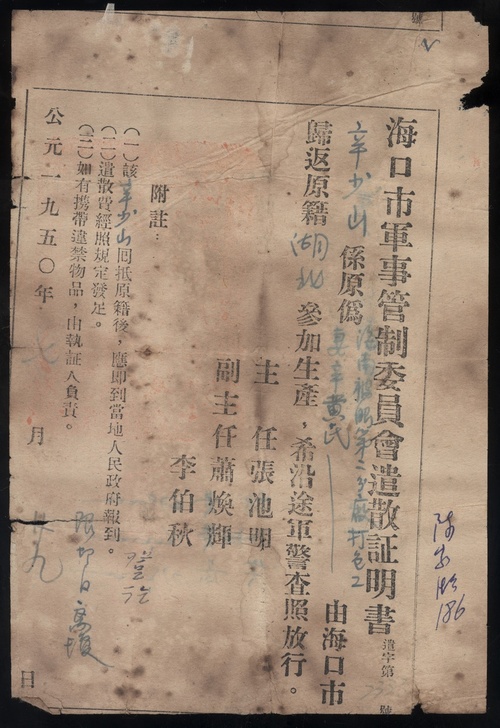 號
海口市軍事管制委員會遣散証明書 遣字第 號
辛少山 係原偽 第二分廠打包工 由海口市
歸返原籍 湖北 參加生產,希沿途軍警查照放行。
主任 張池明
副主任 蕭煥輝
李伯秋
附註:
(一)該辛少山囘抵原籍後,應即到當地人民政府報到。
(二)遣散費經照規定發足。
(三)如有攜帶違禁物品,由執証人負責。
公元一九五〇年 七 月 廿九 日
186